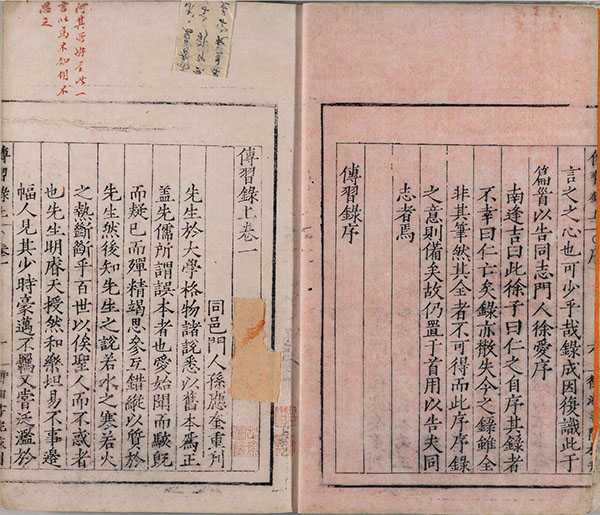 言之之心也可少乎哉錄成因復識此于
篇首以告同志門人徐愛序
南逢吉曰此徐子曰仁之自序其錄者
不幸曰仁亡矣錄亦散失今之錄雖全
非其筆然其全者不可得而此序序錄
之意則備矣故仍置于首用以告夫同
志者焉
傳習錄序
傳習錄上卷一
同邑門人孫應奎重刊
先生於大學格物諸說悉以舊本爲正
蓋先儒所謂誤本者也愛始聞而駭既
而疑已而殫精竭思參互錯綜以質於
先生然後知先生之說若水之寒若火
之熱斷斷乎百世以俟聖人而不惑者
也先生明睿天授然和樂坦易不事邊
幅人見其少時豪邁不羈又嘗泛濫於